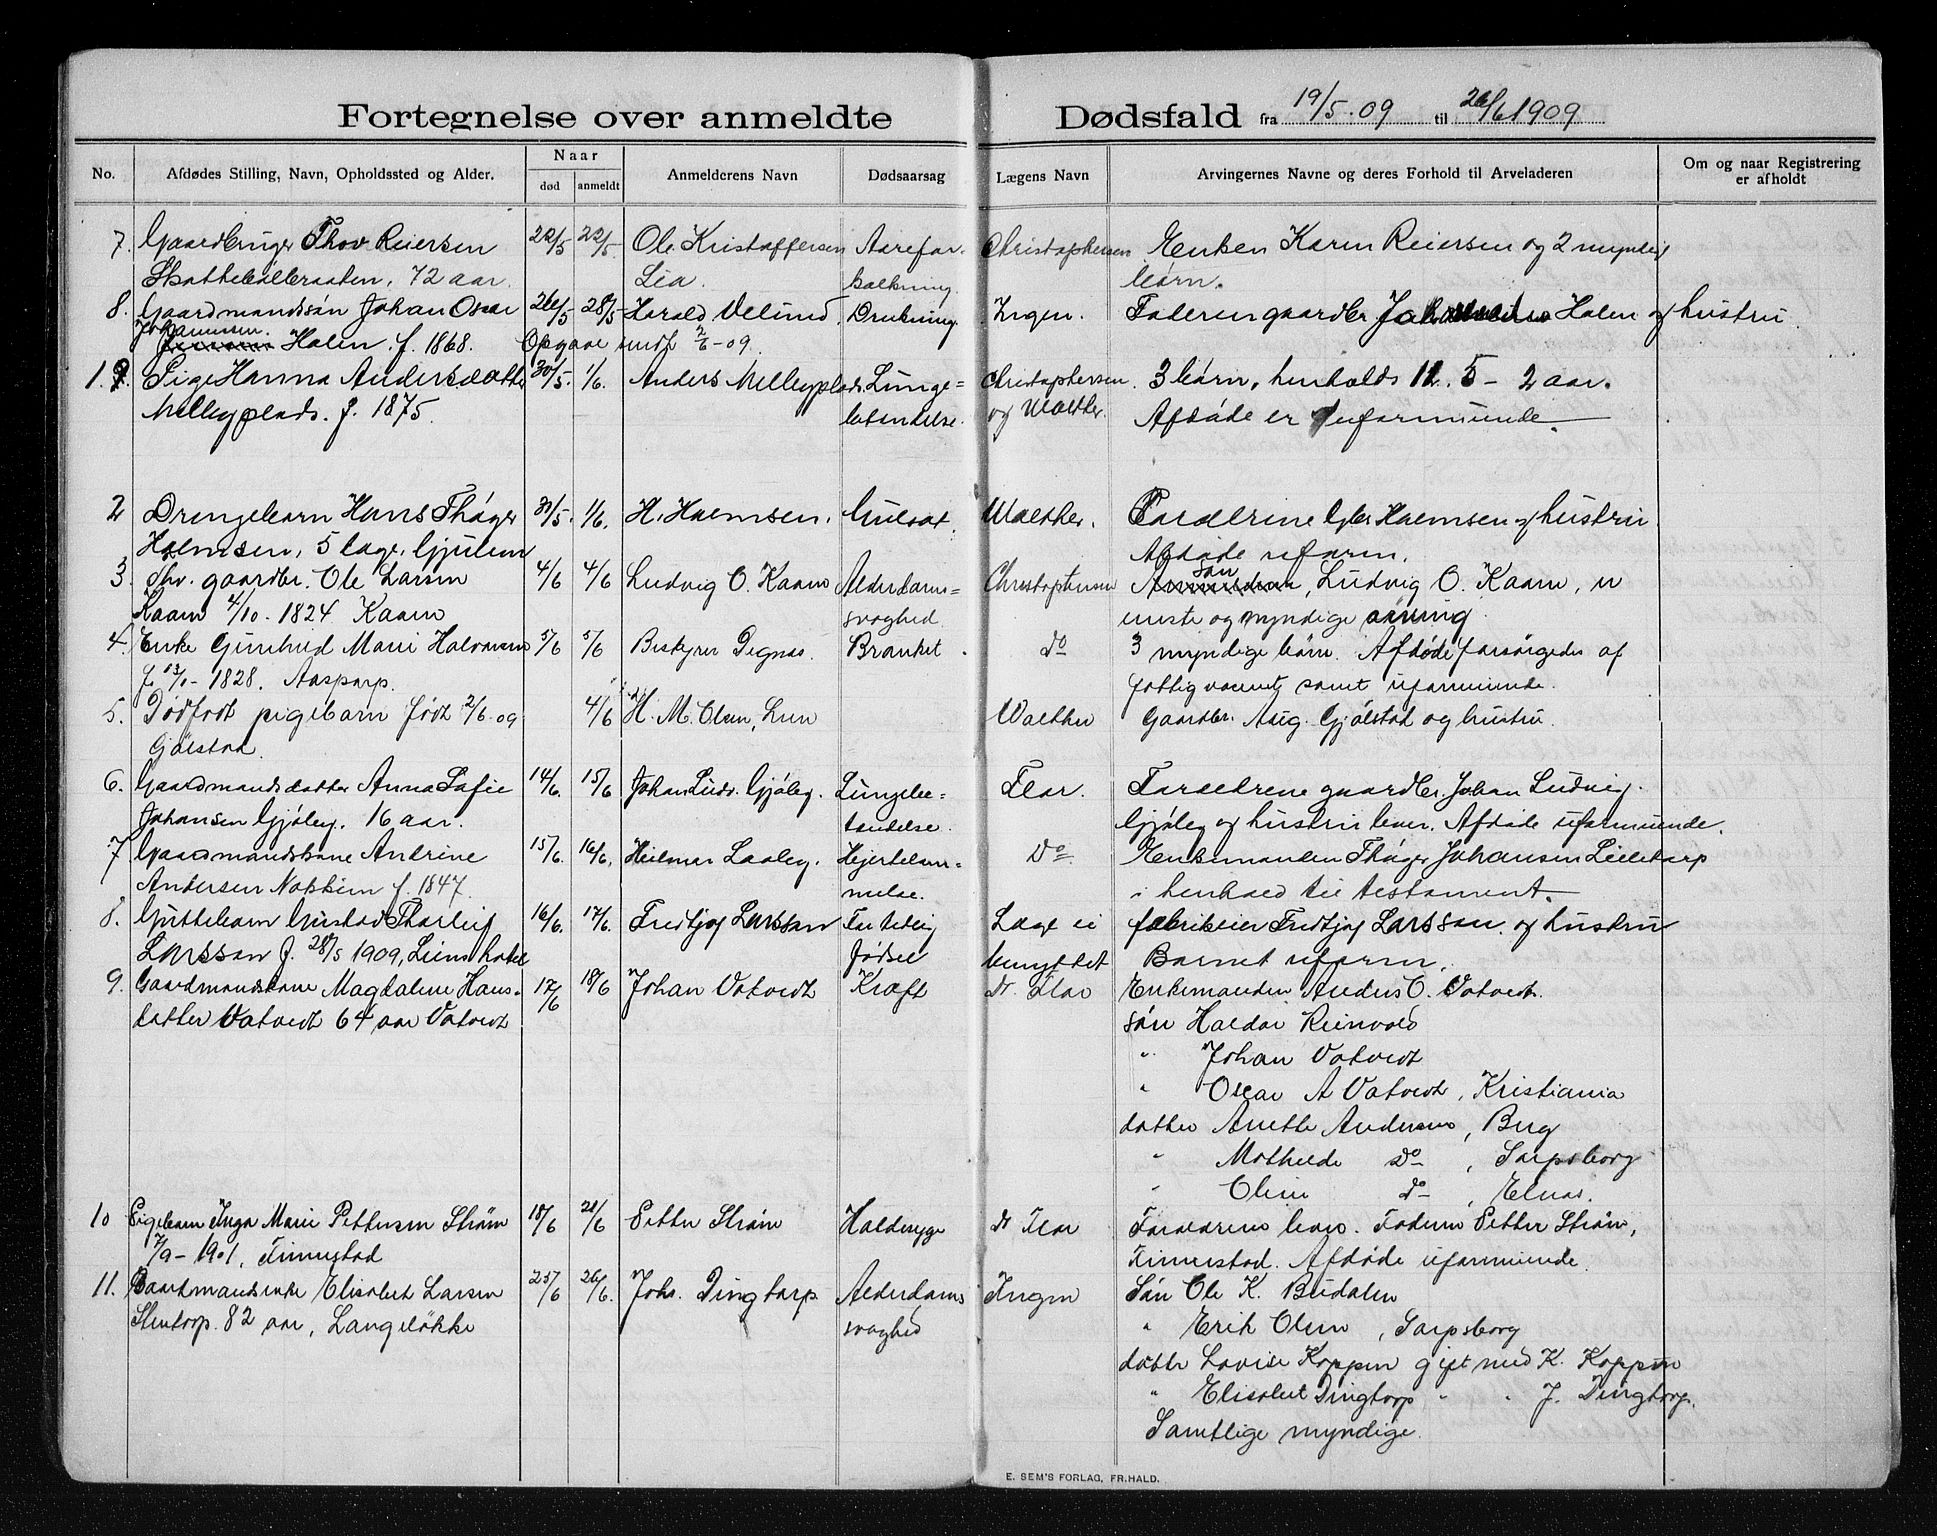 Fortegnelse over anmeldte Dødsfald fra 19/5-09 til 26/6 1909
No. Afdødes Stilling, Navn, Opholdssted og Alder. Naar død anmeldt Anmelderens Navn Dødsaarsag Lægens Navn Arvingernes Navne og deres Forhold til Arveladeren Om og naar Registrering er afholdt
7. Gaardbruger Thov Reiersen 22/5 22/5. Ole Kristoffersen Aarefor- Christophersen Enken Karen Reiersen og 2 myndig
72 aar. Lia. kalkning. børn.
8. Gaardmandssøn Johan Oscar 26/5 28/5 Harald Velund Drukning. Ingen. Faderen gaardbr. Holen og hustru.
Johannesen Holen. f. 1868. Opgave sendt 2/6-09.
1. Pige Hanna Andersdatter 30/5. 1/6. Anders Mellegplads. Lunge= Christophersen 3 børn, henholds 12. 5 - 2 aar.
Mellegplads. f. 1875. betændelse. og Walther. Afdøde er uformuende.
2 Drengebarn Hans Thøger 31/5. 1/6. H. Holmsen. Gulsot. Walther. Forældrene Gbr Holmsen og hustru
Holmsen, 5 dage, Gjulem Afdøde uform.
3. Fhv. gaardbr. Ole Larsen 4/6 4/6 Ludvig O. Kaam Alderdoms= Christophersen søn, Ludvig O. Kaam, er
Kaam 4/10-1824 Kaam svaghed. eneste og myndige arving.
4. Enke Gunhild Marie Halvorsen 5/6 5/6 Bestyrer Degnæs. Bronket. do 3 myndige børn. Afdøde forsørgedes af
f. 13/1-1828. Aasparp. fattigvæsenet samt uformuende.
5. Dødfødt pigebarn født 2/6.09 4/6 H. M. Olsen, Lun Walther Gaardbr. Aug. Gjølstad og hustru.
Gjølstad.
6. Gaardmandsdatter Anna Sofie 14/6. 15/6 Johan Ludv. Gjøleg. Lungebe= Flor. Forældrene gaardbr. Johan Ludvig
Johansen Gjøleg. 16 aar. tændelse. Gjøleg og hustru lever. Afdøde uformuende.
7 Gaardmandskone Andrine 15/6. 16/6. Hilmar Laaleg. Hjertelam- Do. Enkemanden Thøger Johansen Lilletorp
Andersen Nokkim f. 1847. melse. i henhold til testament.
8. Guttebarn Gustav Thorleif 16/6. 17/6. Fredtjof Larsson For tidlig Læge ei fabrikeier Fredtjof Larsson og hustru
Larsson f. 28/5 1909, fødsel benyttet Barnet uform.
9. Gaardmandskone Magdalene Hans- 17/6 18/6 Johan Vatvedt Kræft dr. Flor Enkemanden Anders O. Vatvedt.
datter Vatvedt 64 aar Vatvedt søn Haldor Reinvold
" Johan Vatvedt
" Oscar A Vatvedt, Kristiania
datter Anette Andersen, Berg
" Mathilde do, Sarpsborg
" Oline do, Elnæs.
10 Pigebarn Inga Marie Pettersen Strøm 18/6 21/6 Petter Strøm Haldesyge dr Flor Forældrene leve. Faderen Petter Strøm,
7/9-1901, Finnestad Finnestad. Afdøde uformuende.
11. Gaardmandsenke Elisabet Larsen 25/6 26/6. Johs. Dingtorp Alderdoms Ingen Søn Ole K. Budalen
Stentorp. 82 aar, Langeløkke svaghed " Erik Olsen, Sarpsborg
datter Lovise Koppen gift med K. Koppen
" Elisabet Dingtorp " " J. Dingtorp.
Samtlige myndige.
E. SEM'S FORLAG, FR.HALD.